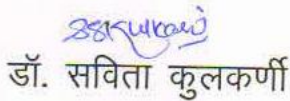 डॉ. सविता कुलकर्णी